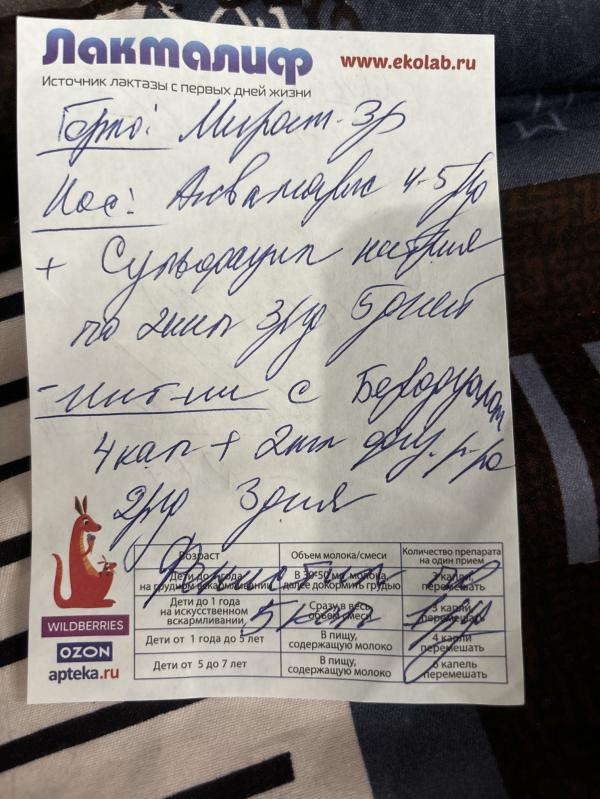 Лакталиф
www.ekolab.ru
Источник лактазы с первых дней жизни
Горло:
Нос: Аквамарис 4-5 р/д
+ Сульфацил натрия
по 2кап 3р/д 5 дней
- инг-ии с Беродуалом
4кап + 2мл физ. р-ра
2р/д 3 дня
5 кап 1р/д
Возраст Объем молока/смеси Количество препарата на один прием
Дети до 1 года на грудном вскармливании В 30-50 мл молока, далее докормить грудью перемешать
Дети до 1 года на искусственном вскармливании Сразу в весь объем смеси перемешать
Дети от 1 года до 5 лет В пищу, содержащую молоко 4 капли перемешать
Дети от 5 до 7 лет В пищу, содержащую молоко капель перемешать
WILDBERRIES
OZON
apteka.ru